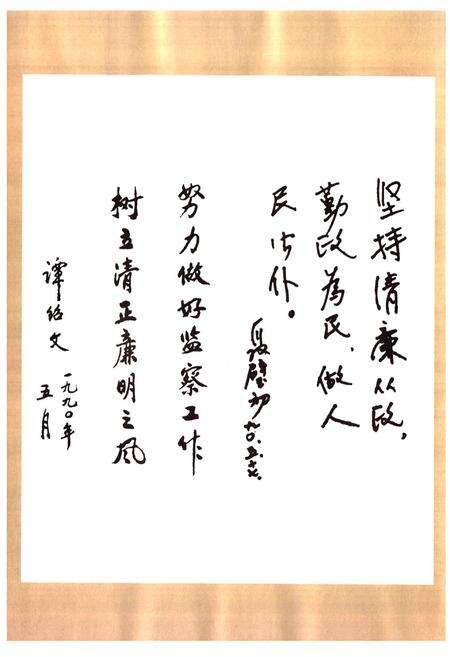 坚持清廉从政，
勤政為民，做人
民公仆。
聂璧初
九〇.五.
努力做好监察工作
树立清正廉明之风
谭绍文
一九九〇年
五月